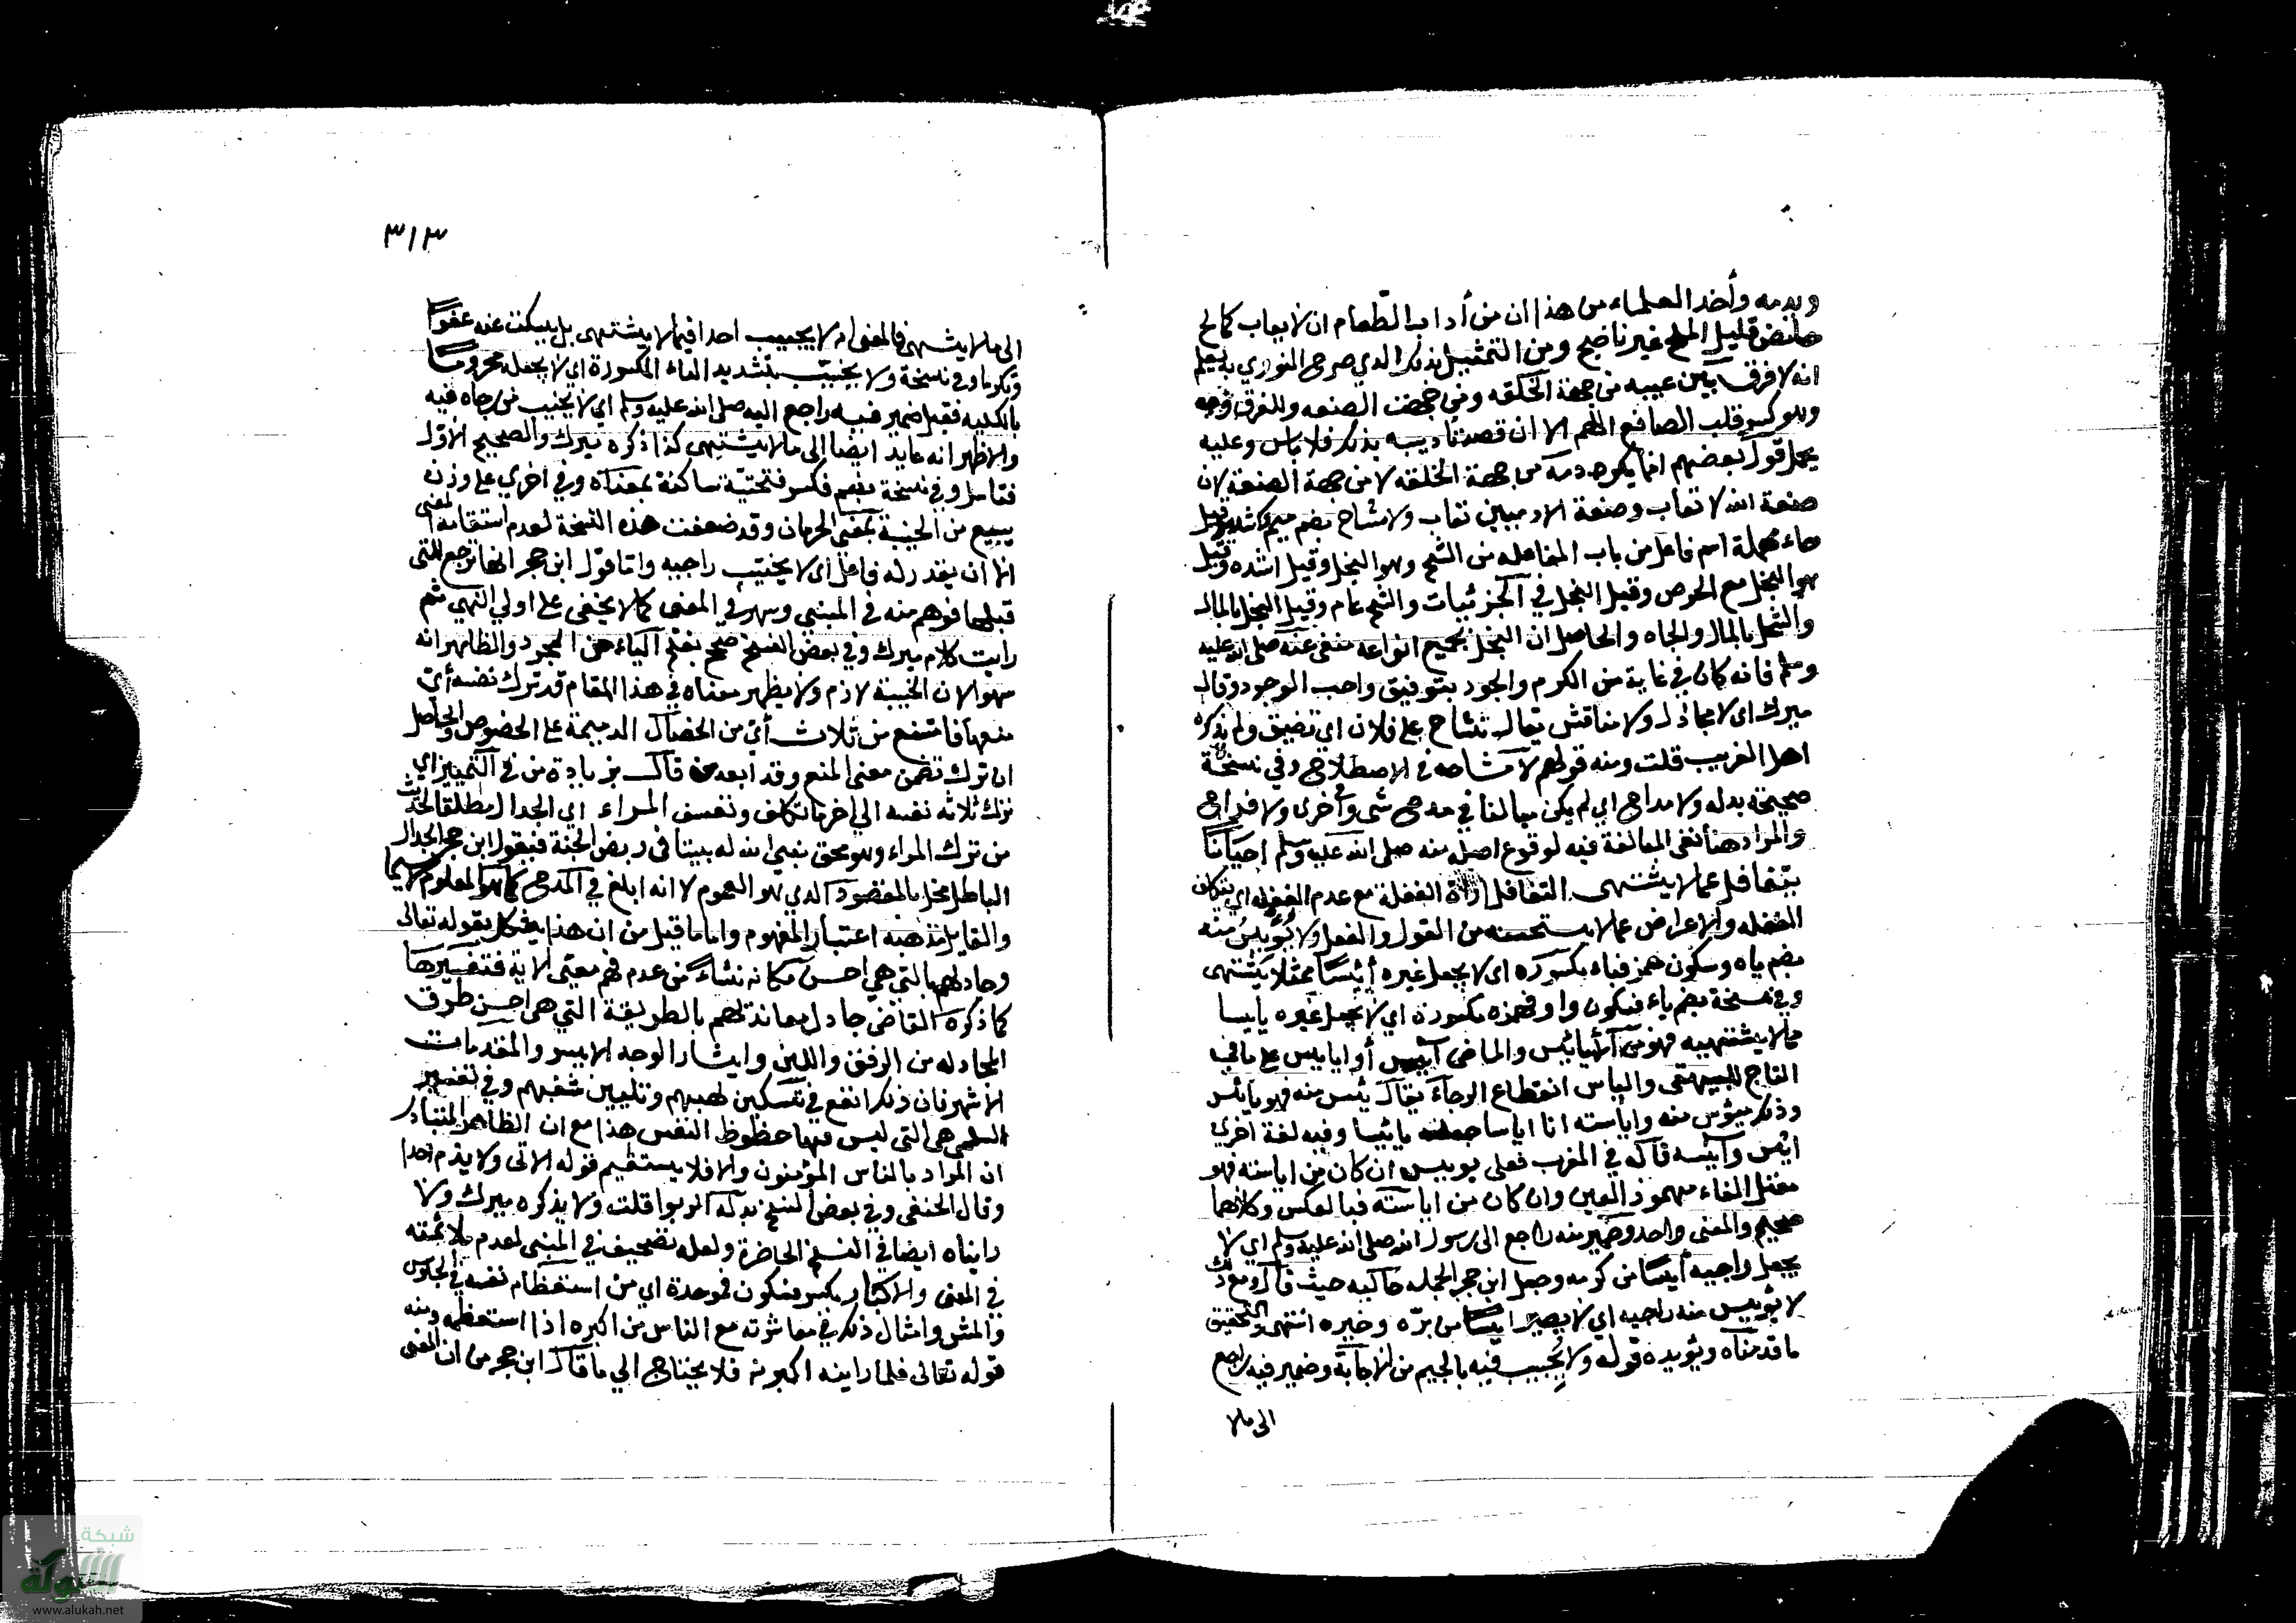 وبذمه وأخذ العلماء من هذا ان من أداب الطعام ان لا يعاب كمالح
حامض قليل الملح غير ناضج ومن التمثيل بذلك الذي صرح النووي به يعلم
انه لا فرق بين عيبه من جهة الخلقه ومن جهت الصنعه وللفرق وجه
وهو كسر قلب الصانع اللهم الا ان قصد تاديبه بذلك فلا باس وعليه
يحمل قول بعضهم انما يكره ذمه من جهة الخلقه لا من جهة الصنعة لان
صنعة الله لا تعاب وصنعة الادميين تعاب ولا مشاح بضم ميم وتشديد
حاء مهملة اسم فاعل من باب المفاعله من الشح وهو البخل وقيل اشده وقيل
هو البخل مع الحرص وقيل البخل في الجزئيات والشح عام وقيل البخل بالمال
والشح بالمال والجاه والحاصل ان البخل بجميع انواعه منفى عنه صلى الله عليه
وسلم فانه كان في غاية من الكرم والجود بتوفيق واجب الوجود وقال
ميرك اى لا مجادل ولا مناقش يقال تشاح على فلان اي تضيق ولم يذكره
اهل الغريب قلت ومنه قولهم لا مشاحه في الاصطلاح وفي نسخة
صحيحة بدله ولا مداح اي لم يكن مبالغا في مدح شى وفي أخرى ولا مزاح
والمراد هنا نفى المبالغة فيه لوقوع اصله منه صلى الله عليه وسلم احيانا
يتغافل عما لا يشتهى التغافل اراة الغفلة مع عدم الغفله اي يتكلف
الغفله والاعراض عما لا يستحسنه من القول والفعل ولا يؤيس منه
بضم ياه وسكون همز فياء مكسوره اى لا يجعل غيره أيسا مما لا يشتهى
وفي نسخة بضم ياء فسكون واو فهمزه مكسورة اي لا يجعل غيره يايسا
مما لا يشتهيه فهو من
التاج للبيهقى والياس انقطاع الرجاء يقال يئس منه فهو يائس
وذلك ميؤس منه وايأسته انا اياسا جعلته يائيسا وفيه لغة اخري
ايس وآيسه قاله في المغرب فعلى يوييس ان كان من اياسته فهو
معتل الفاء مهموز العين وان كان من اياسته فبالعكس وكلاهما
صحيح والمعنى واحد وضمير منه راجع الى رسول الله صلى الله عليه وسلم اي لا
يجعل راجيه أيسا من كرمه وجعل ابن حجر الجمله حاليه حيث قال ومع ذلك
لا يؤييس منه راجيه اي لا يصير ايسا من برّه وخيره انتهى والتحقيق
ما قدمناه ويؤيده قوله ولا يُجيب فيه بالجيم من الاجابة وضمير فيه راجع
الى ما لا
٣١٣
الى ما لا يشتهى فالمعنى انه لا يجيب احدا فيما لا يشتهى بل يسكت عنه عفوا
وتكرما وفي نسخة ولا يخيّب بتشديد الياء المكسورة اي لا يجعله محروما
بالكليه فقيل ضمير فيه راجع اليه صلى الله عليه وسلم اي لا يخيب من رجاه فيه
والاظهر انه عايد ايضا الى ما لا يشتهى كذا ذكره ميرك والصحيح الاول
فتامل وفي نسخة بفتح فكسر فتحتيّة ساكنة بمعناه وفي اخري على وزن
يبيع من الخيبة بمعنى الحرمان وقد ضعفت هذه النسخة لعدم استقامة المعنى
الا ان يقدر له فاعل اى لا يخيّب راجيه واما قول ابن حجر انها ترجع للتى
قبلها فوهم منه في المبنى وسهو في المعنى كما لا يخفى على اولي النهي ثم
رايت كلام ميرك وفي بعض النسخ صح بفتح الياء من المجرد والظاهر انه
سهو لان الخيبة لازم ولا يظهر معناه في هذا المقام قد ترك نفسه أى
منعها فامتنع من ثلاث أى من الخصال الذميمة على الخصوص والحاصل
ان ترك تضمن معنى المنع وقد أبعد من قال بزيادة من في التمييز اي
ترك ثلاثه نفسه الى اخر ما تكلف وتعسف المراء اي الجدال مطلقا لحديث
من ترك المراء وهو محق بني الله له بيتا فى ربض الجنة فبقول ابن حجر الجدال
الباطل مخل بالمقصود الذي هو العموم لانه ابلغ في المدح كما هو المعلوم لا سيما
والقايل مذهبه اعتبار المفهوم واما ما قيل من ان هذا يشكل بقوله تعالى
وجادلهم بالتى هي احسن فكانه نشاء من عدم فهم معنى الاية فتفسيرها
كما ذكره القاضى جادل معاندتهم بالطريقة التي هى احسن طرق
المجادله من الرفق واللين وايثار الوجه الايسر والمقدمات
الاشهر فان ذلك انفع في تسكين لهبهم وتليين شغبهم وفي تفسير
السلمي هى التى ليس فيها حظوظ النفس هذا مع ان الظاهر المتبادر
ان المراد بالناس المؤمنون والا فلا يستقيم قوله الاتى ولا يذم احدا
وقال الحنفى وفي بعض النسخ بدله الربوا قلت ولا يذكره ميرك ولا
رايناه ايضا في النسخ الحاضرة ولعله تصحيف في المبنى لعدم ملائمته
في المعنى والاكبار بكسر فسكون فموحدة اي من استعظام نفسه في الجلوس
والمشى وامثال ذلك في معاشرته مع الناس من اكبره اذا استعظمه ومنه
قوله تعالى فلما راينه اكبرنه فلا يحتاج الي ما قال ابن حجر من ان المعنى
شبكة
الألوكة
www.alukah.net